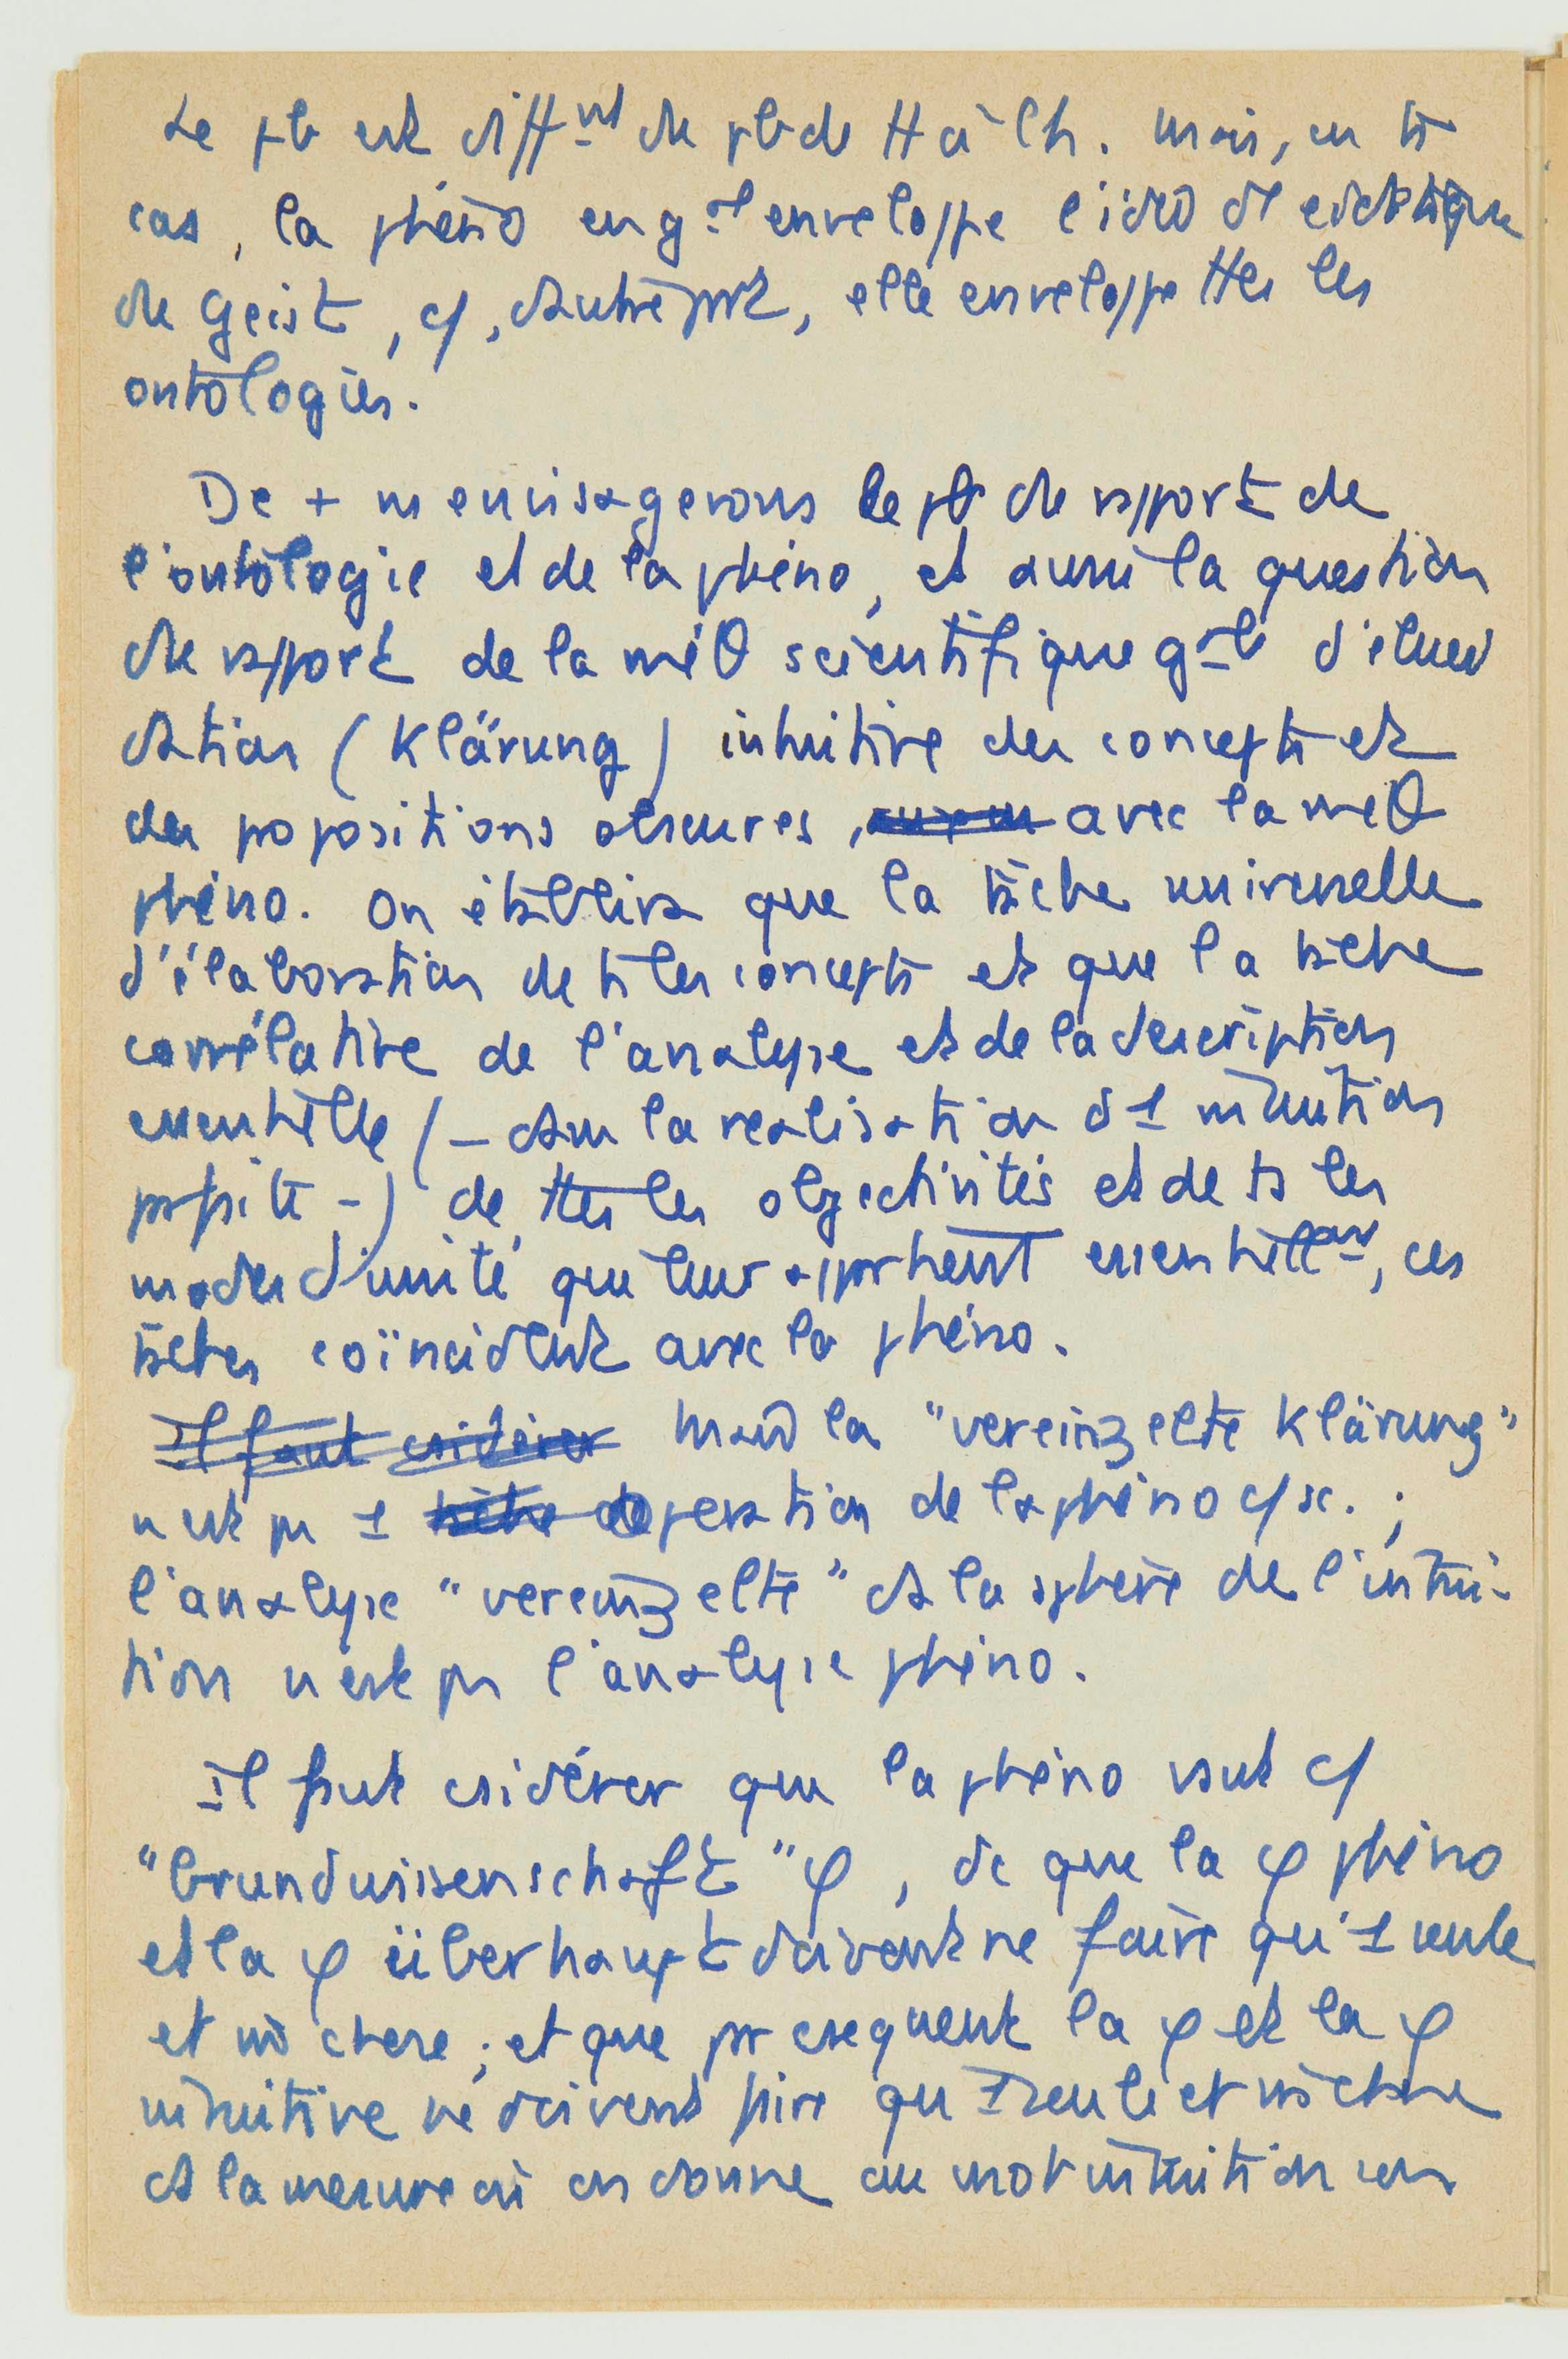 Le pb est diff^nt du pb de H à Ch. Mais, en tt
cas, la phéno en g^al enveloppe l'idéo et eidétique
du Geist, c/, d'autre part, elle enveloppe ttes les
ontologies.
De + ns envisagerons le pb du rapport de
l'ontologie et de la phéno, et aussi la question
du rapport de la méθ scientifique g^ale d'éluci
dation (Klärung) intuitive des concepts et
des propositions obscures, avec la méθ
phéno. On établira que la tâche universelle
d'élaboration de ts les concepts et que la tâche
corrélative de l'analyse et de la description
essentielle (– dans la réalisation d'1 intuition
parfaite –) de ttes les objectivités et de ts les
modes d'unité qui leur appartient essentiell^ent, ces
tâches coïncident avec la phéno.
Il faut csidérer Mais la "vereinzelte Klärung"
n'est pas 1 tâche opération de la phéno c/ sc. ;
l'analyse "vereinzelte" ds la sphère de l'intui-
tion n'est pas l'analyse phéno.
Il faut csidérer que la phéno vaut c/
"Grundwissenschaft" φ, dc que la φ phéno
et la φ überhaupt doivent ne faire qu'1 seule
et m̂ chose ; et que par cséquent la φ et la φ
intuitive ne doivent faire qu'1 seule et m̂ chose
ds la mesure où on donne au mot intuition son